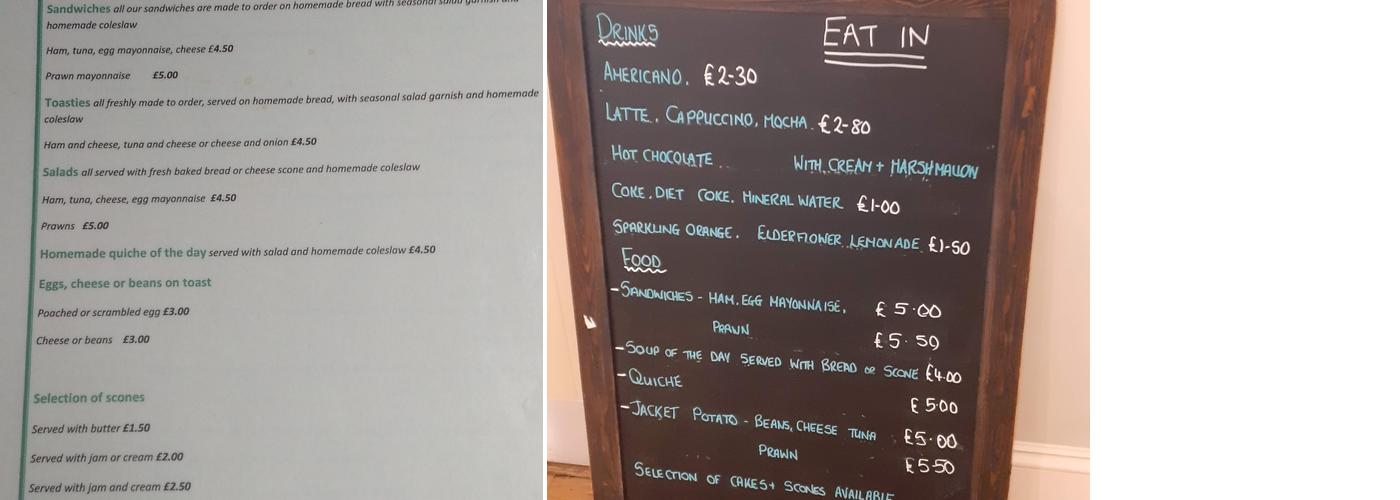 Sandwiches all our sandwiches are made to order on homemade bread with seasonal salad garnish and
homemade coleslaw
Ham, tuna, egg mayonnaise, cheese £4.50
Prawn mayonnaise £5.00
Toasties all freshly made to order, served on homemade bread, with seasonal salad garnish and homemade
coleslaw
Ham and cheese, tuna and cheese or cheese and onion £4.50
Salads all served with fresh baked bread or cheese scone and homemade coleslaw
Ham, tuna, cheese, egg mayonnaise £4.50
Prawns £5.00
Homemade quiche of the day served with salad and homemade coleslaw £4.50
Eggs, cheese or beans on toast
Poached or scrambled egg £3.00
Cheese or beans £3.00
Selection of scones
Served with butter £1.50
Served with jam or cream £2.00
Served with jam and cream £2.50
DRINKS
EAT IN
AMERICANO. £2-30
LATTE, CAPPUCCINO, MOCHA. £2-80
HOT CHOCOLATE .. WITH CREAM + MARSHMALLOW
COKE, DIET COKE, MINERAL WATER £1-00
SPARKLING ORANGE. ELDERFLOWER LEMONADE £1-50
FOOD
-SANDWICHES - HAM, EGG MAYONNAISE, £5.00
PRAWN £5.50
-SOUP OF THE DAY SERVED WITH BREAD or SCONE £4.00
-QUICHE £5.00
-JACKET POTATO - BEANS, CHEESE TUNA £5.00
PRAWN £5.50
SELECTION OF CAKES + SCONES AVAILABLE